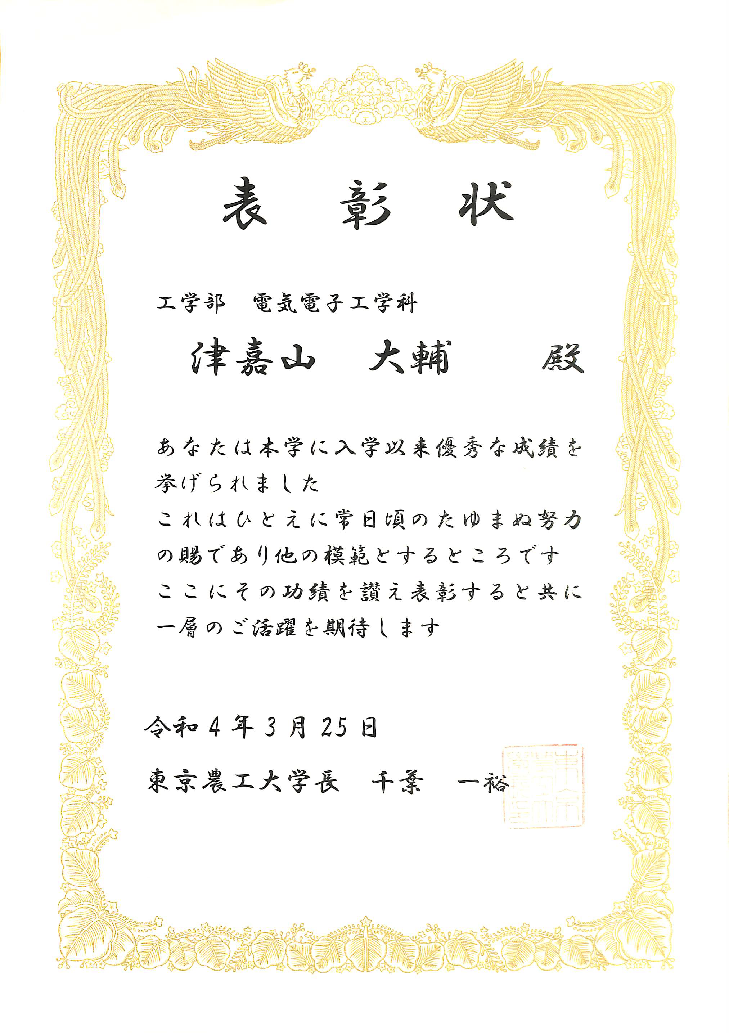 表彰状
工学部　電気電子工学科
津嘉山　大輔　殿
あなたは本学に入学以来優秀な成績を
挙げられました
これはひとえに常日頃のたゆまぬ努力
の賜であり他の模範とするところです
ここにその功績を讃え表彰すると共に
一層のご活躍を期待します
令和4年3月25日
東京農工大学長　千葉　一裕